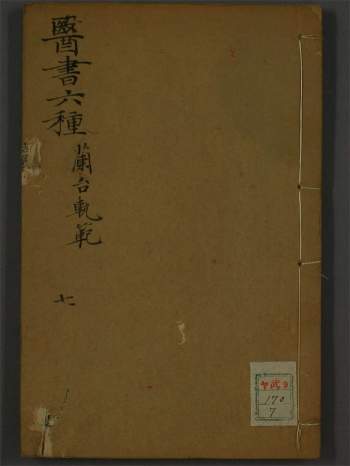 醫書六種
蘭台軌範
七
170
7